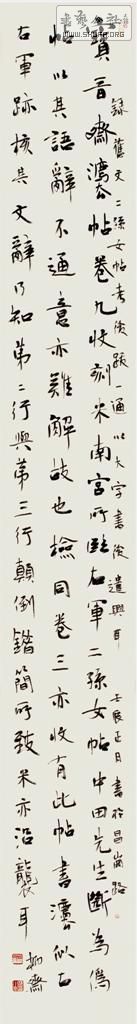 寶晉齋灋帖卷九收刻米南宮所臨右軍二孫女帖中田先生斷為偽
帖以其語辭不通意亦難解故也檢同卷三亦收有此帖書灋似出
右軍跡核其文辭乃知第二行與第三行顛倒錯簡所致米亦沿襲耳
錄舊文二孫女帖書後跋一通以大字書後遣興耳 壬辰正日書於昌崗路